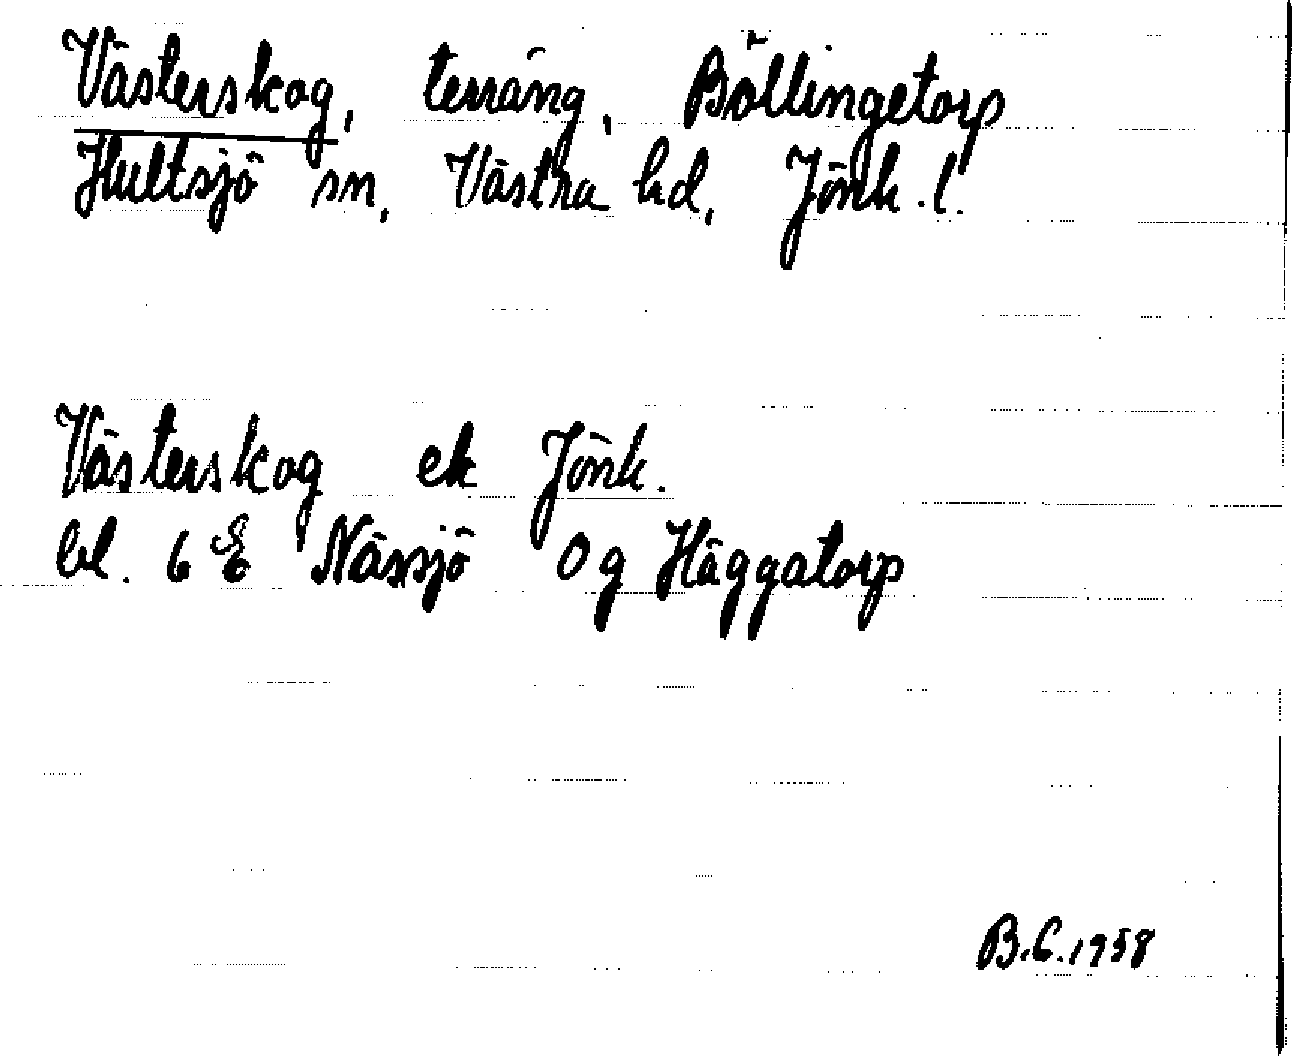 Västerskog, terräng, Böllingetorp
Hultsjö sn, Västra hd, Jönk. l.
Västerskog ek Jönk.
bl. 6 E Nässjö 0 g Häggatorp
B.C. 1958